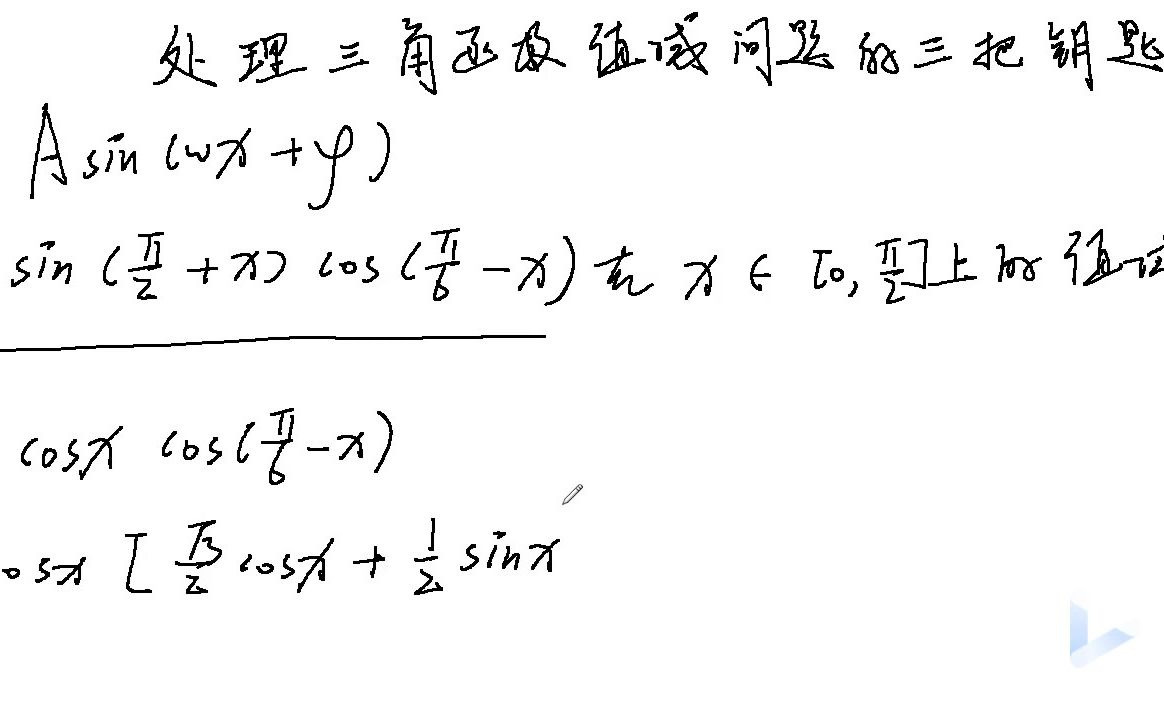 处理三角函数值域问题的三把钥匙
A sin(ωx+φ)
sin(π/2+x) cos(π/6-x) 在 x∈[0,π/2]上的值域
cosx cos(π/6-x)
osx [√3/2 cosx + 1/2 sinx